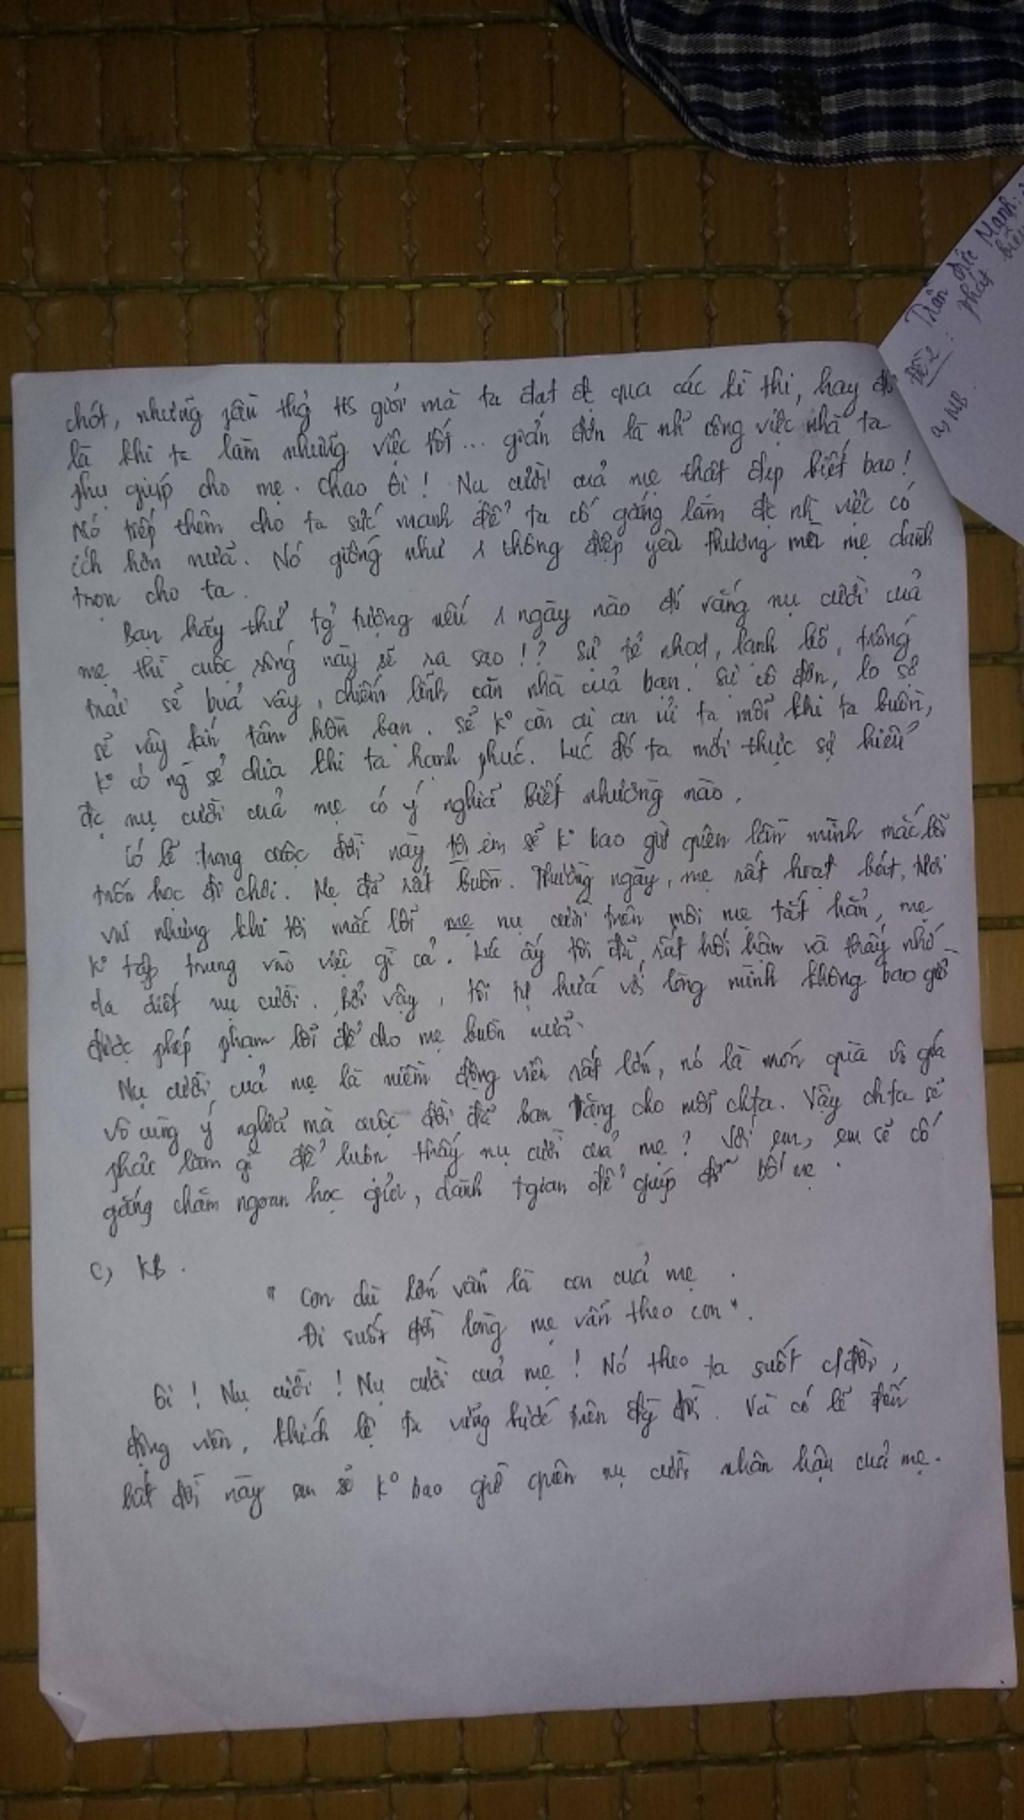 chót, những phần thg HS giỏi mà ta đạt đc qua các kì thi, hay đó
là khi ta làm những việc tốt... giản đơn là nh~ công việc nhà ta
phụ giúp cho mẹ. Chao ôi! Nụ cười của mẹ thật đẹp biết bao!
Nó tiếp thêm cho ta sức mạnh để ta cố gắng làm đc nh~ việc có
ích hơn nữa. Nó giống như 1 thông điệp yêu thương mà mẹ dành
trọn cho ta.
Bạn hãy thử tg tượng nếu 1 ngày nào đó vắng nụ cười của
mẹ thì cuộc sống này sẽ ra sao!? Sự tẻ nhạt, lạnh lẽo, trống
trải sẽ bủa vây, chiếm lĩnh căn nhà của bạn. Sự cô đơn, lo sợ
sẽ vây kín tâm hồn bạn. Sẽ ko còn ai an ủi ta mỗi khi ta buồn,
ko có ng sẻ chia khi ta hạnh phúc. Lúc đó ta mới thực sự hiểu
đc nụ cười của mẹ có ý nghĩa biết nhường nào.
Có lẽ trong cuộc đời này tôi em sẽ ko bao giờ quên lần mình mắc lỗi
trốn học đi chơi. Mẹ đã rất buồn. Thường ngày, mẹ rất hoạt bát, vui
vẻ nhưng khi tôi mắc lỗi mẹ nụ cười trên môi mẹ tắt hẳn, mẹ
ko tập trung vào việc gì cả. Lúc ấy tôi đã rất hối hận và thấy nhớ
da diết nụ cười. Bởi vậy, tôi tự hứa với lòng mình không bao giờ
được phép phạm lỗi để cho mẹ buồn nữa.
Nụ cười của mẹ là niềm động viên rất lớn, nó là món quà vô giá
vô cùng ý nghĩa mà cuộc đời đã ban tặng cho mỗi chta. Vậy chta sẽ
phải làm gì để luôn thấy nụ cười của mẹ? Với em, em sẽ cố
gắng chăm ngoan học giỏi, dành tgian để giúp đỡ bố mẹ.
c, KB.
" Con dù lớn vẫn là con của mẹ.
Đi suốt đời lòng mẹ vẫn theo con".
Ôi! Nụ cười! Nụ cười của mẹ! Nó theo ta suốt c/đời,
động viên, khích lệ ta vững bước trên đg đời. Và có lẽ đến
hết đời này em sẽ ko bao giờ quên nụ cười nhân hậu của mẹ.
Trần Đức Mạnh:
Đề 2: phát biểu
a, MB.